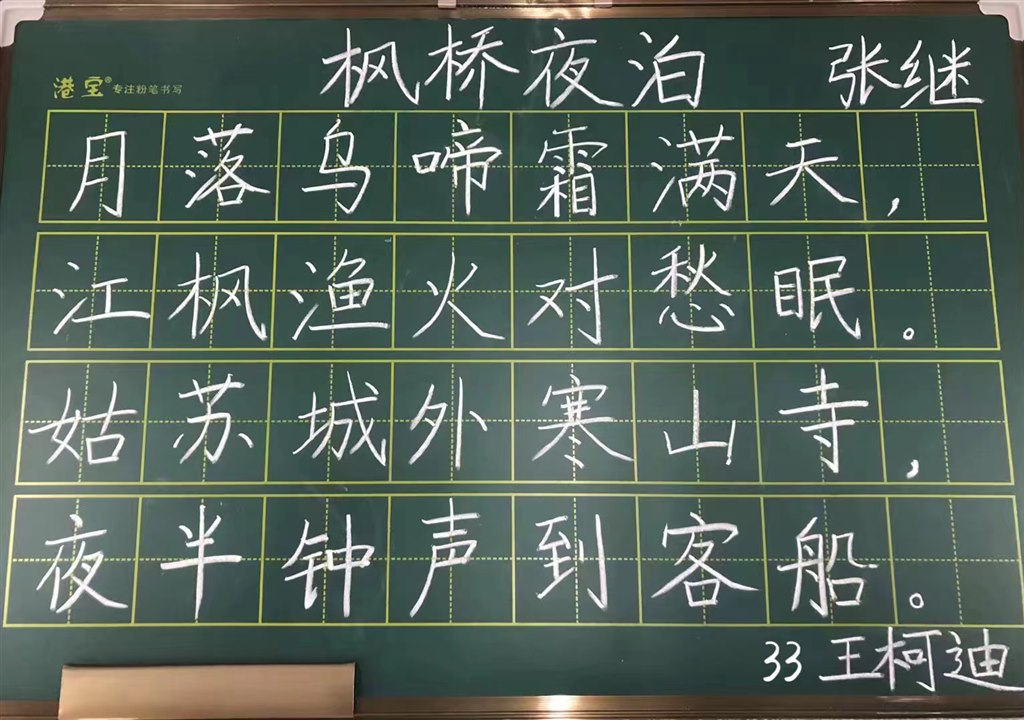 枫桥夜泊 张继
港宝® 专注粉笔书写
月落乌啼霜满天，
江枫渔火对愁眠。
姑苏城外寒山寺，
夜半钟声到客船。
33 王柯迪